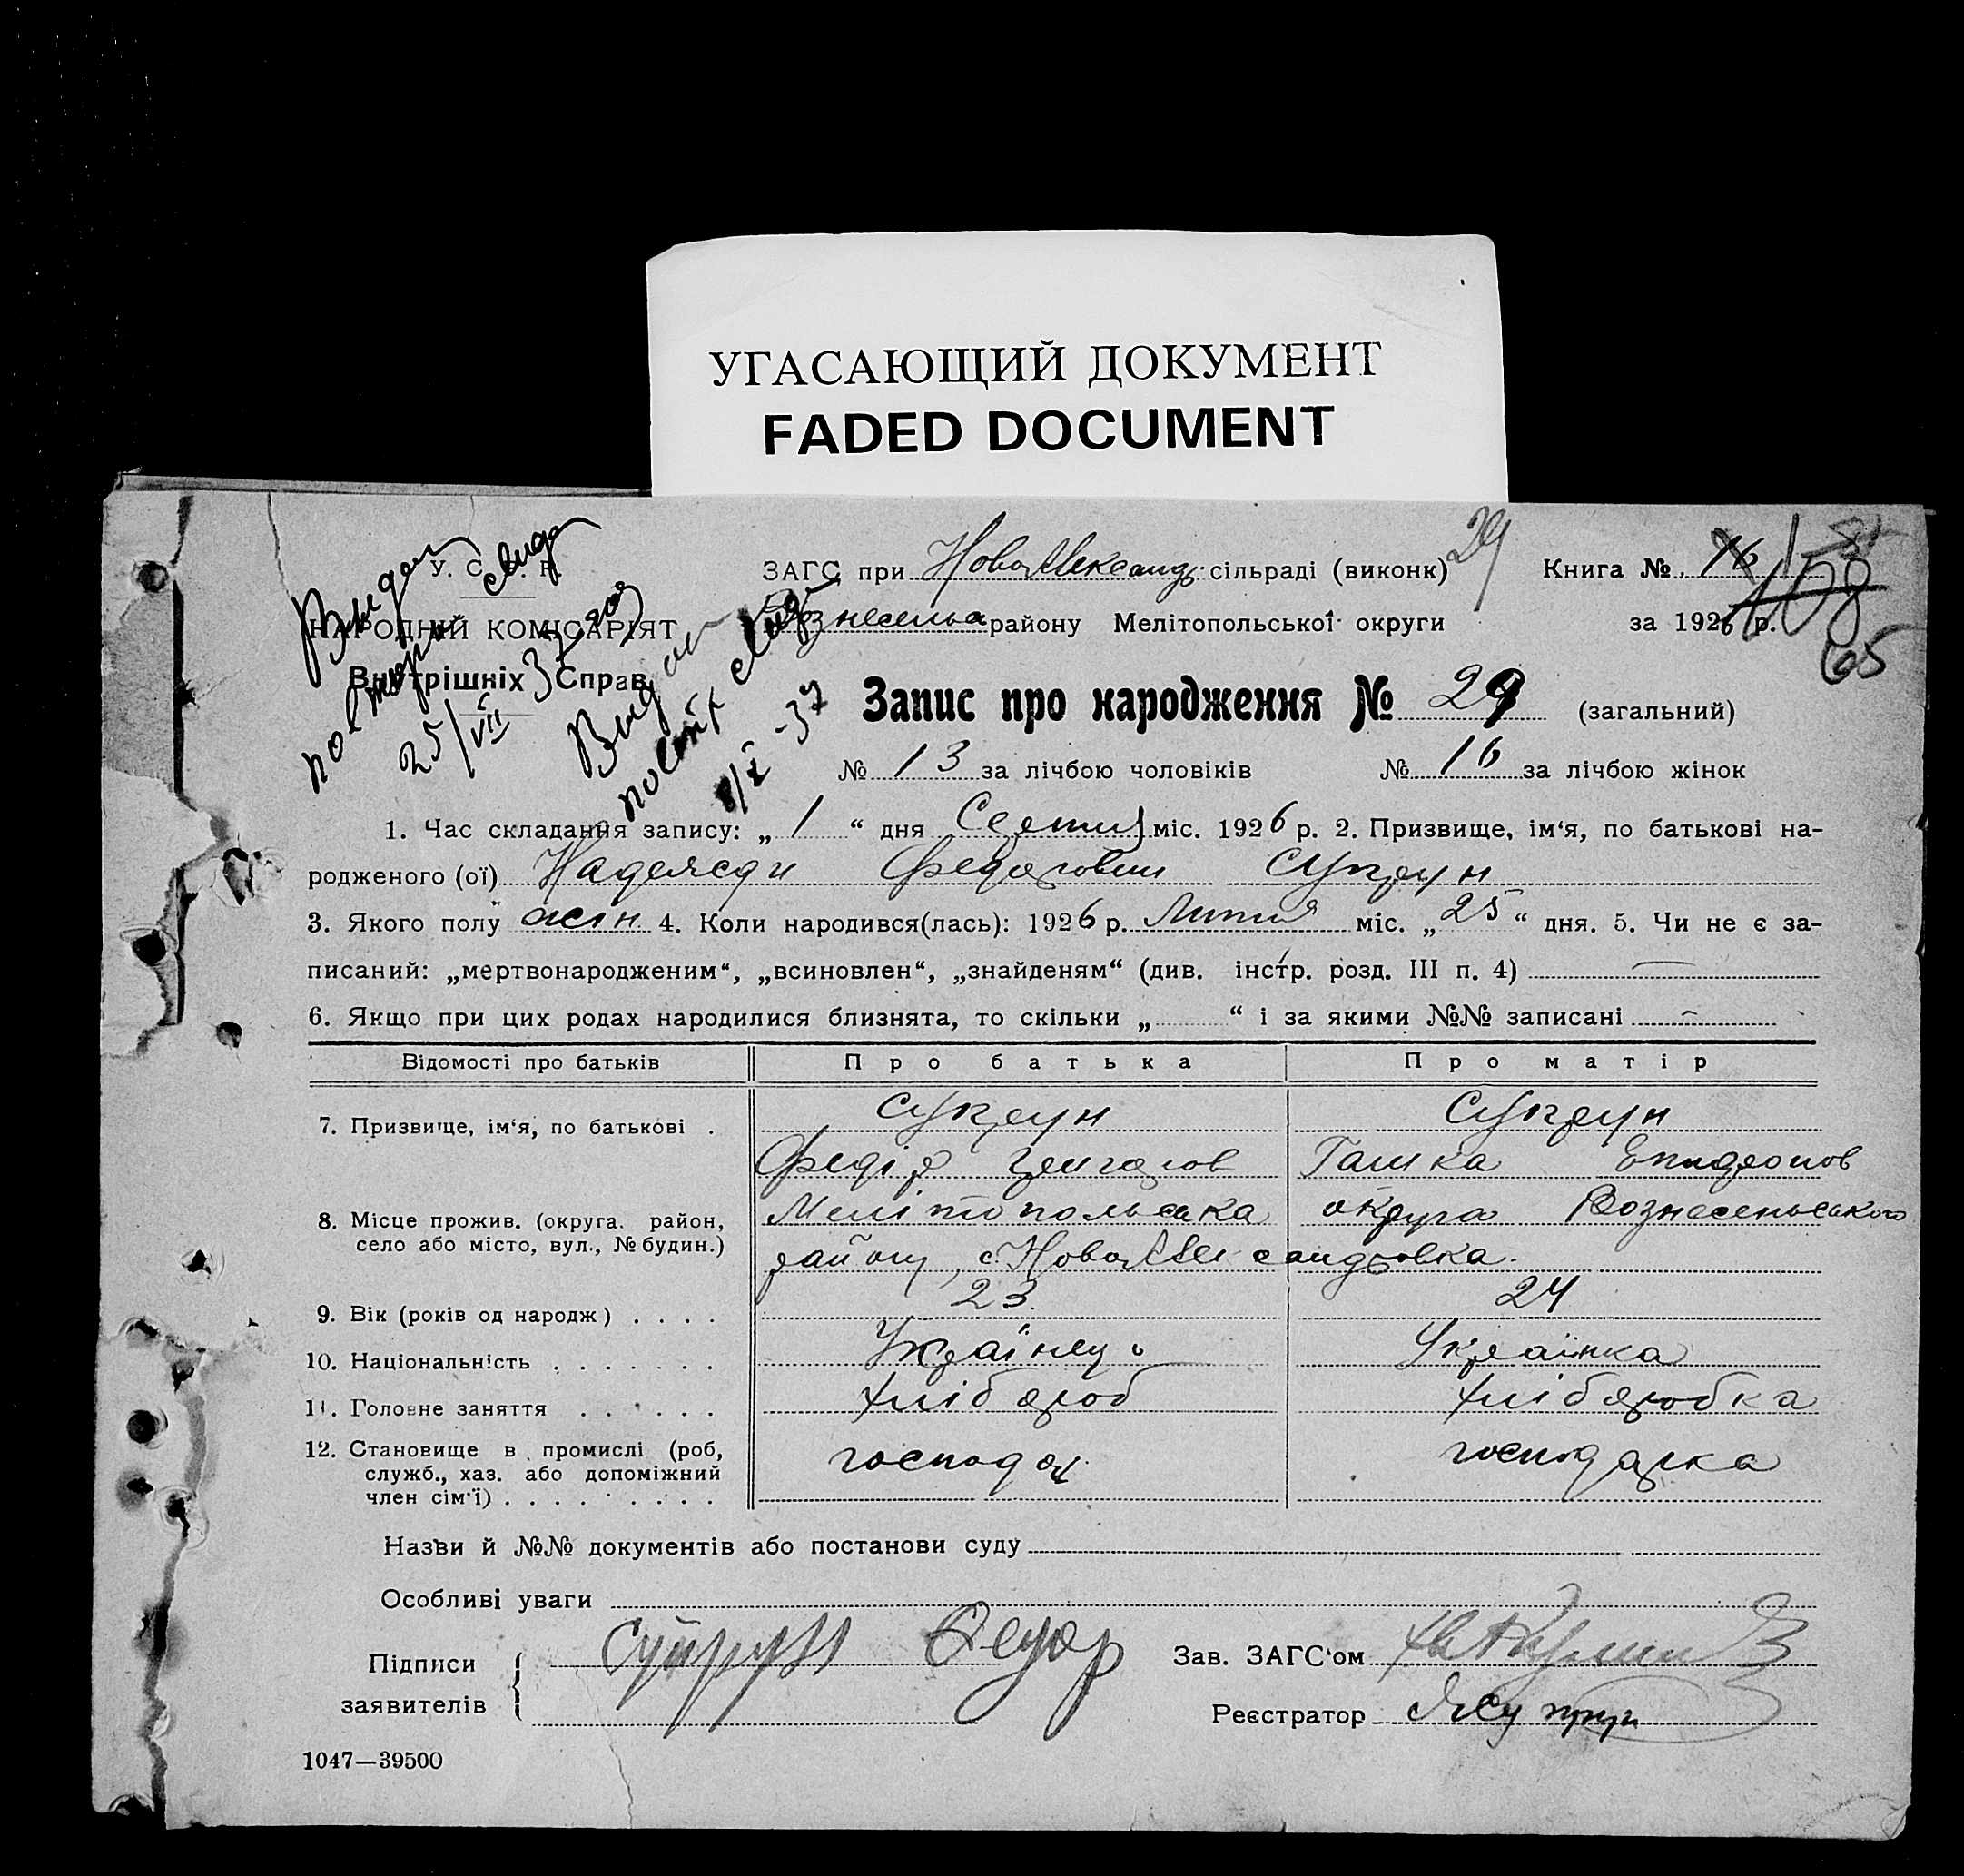 УГАСАЮЩИЙ ДОКУМЕНТ
FADED DOCUMENT
У. С. Р. Р.
НАРОДНІЙ КОМІСАРІЯТ
Внутрішніх Справ
Выдан
повторн свид
25/VII 37 год
Выдан
повт свид
-37
ЗАГС при НовоАлександ сільраді (виконк) 29
Вознесенс району Мелітопольської округи
Книга № 16
108
за 1926 р.
65
Запис про народження № 29 (загальний)
№ 13 за лічбою чоловіків № 16 за лічбою жінок
1. Час складання запису: „ 1 “ дня міс. 1926 р. 2. Призвище, ім‘я, по батькові на-
родженого (ої) Федоровни Супрун
3. Якого полу жін 4. Коли народився(лась): 1926 р. Липня міс. „ 25 “ дня. 5. Чи не є за-
писаний: „мертвонародженим“, „всиновлен“, „знайденям“ (див. інстр. розд. III п. 4) —
6. Якщо при цих родах народилися близнята, то скільки „ “ і за якими №№ записані -
Відомості про батьків Про батька Про матір
7. Призвище, ім‘я, по батькові . Супрун Супрун
Федір Ганка
8. Місце прожив. (округа. район, Мелітопольська округа Вознесенського
село або місто, вул., № будин.) району, с НовоАлександровка.
9. Вік (років од народж) . . . . 23. 24
10. Національність . . . . . . . Українець Українка
11. Головне заняття . . . . . . хлібороб хліборобка
12. Становище в промислі (роб, господар господарка
служб., хаз. або допоміжний
член сім‘ї) . . . . . . . . .
Назви й №№ документів або постанови суду
Особливі уваги
Підписи
заявителів
Супрун Федор
Зав. ЗАГС‘ом
Реєстратор
1047—39500